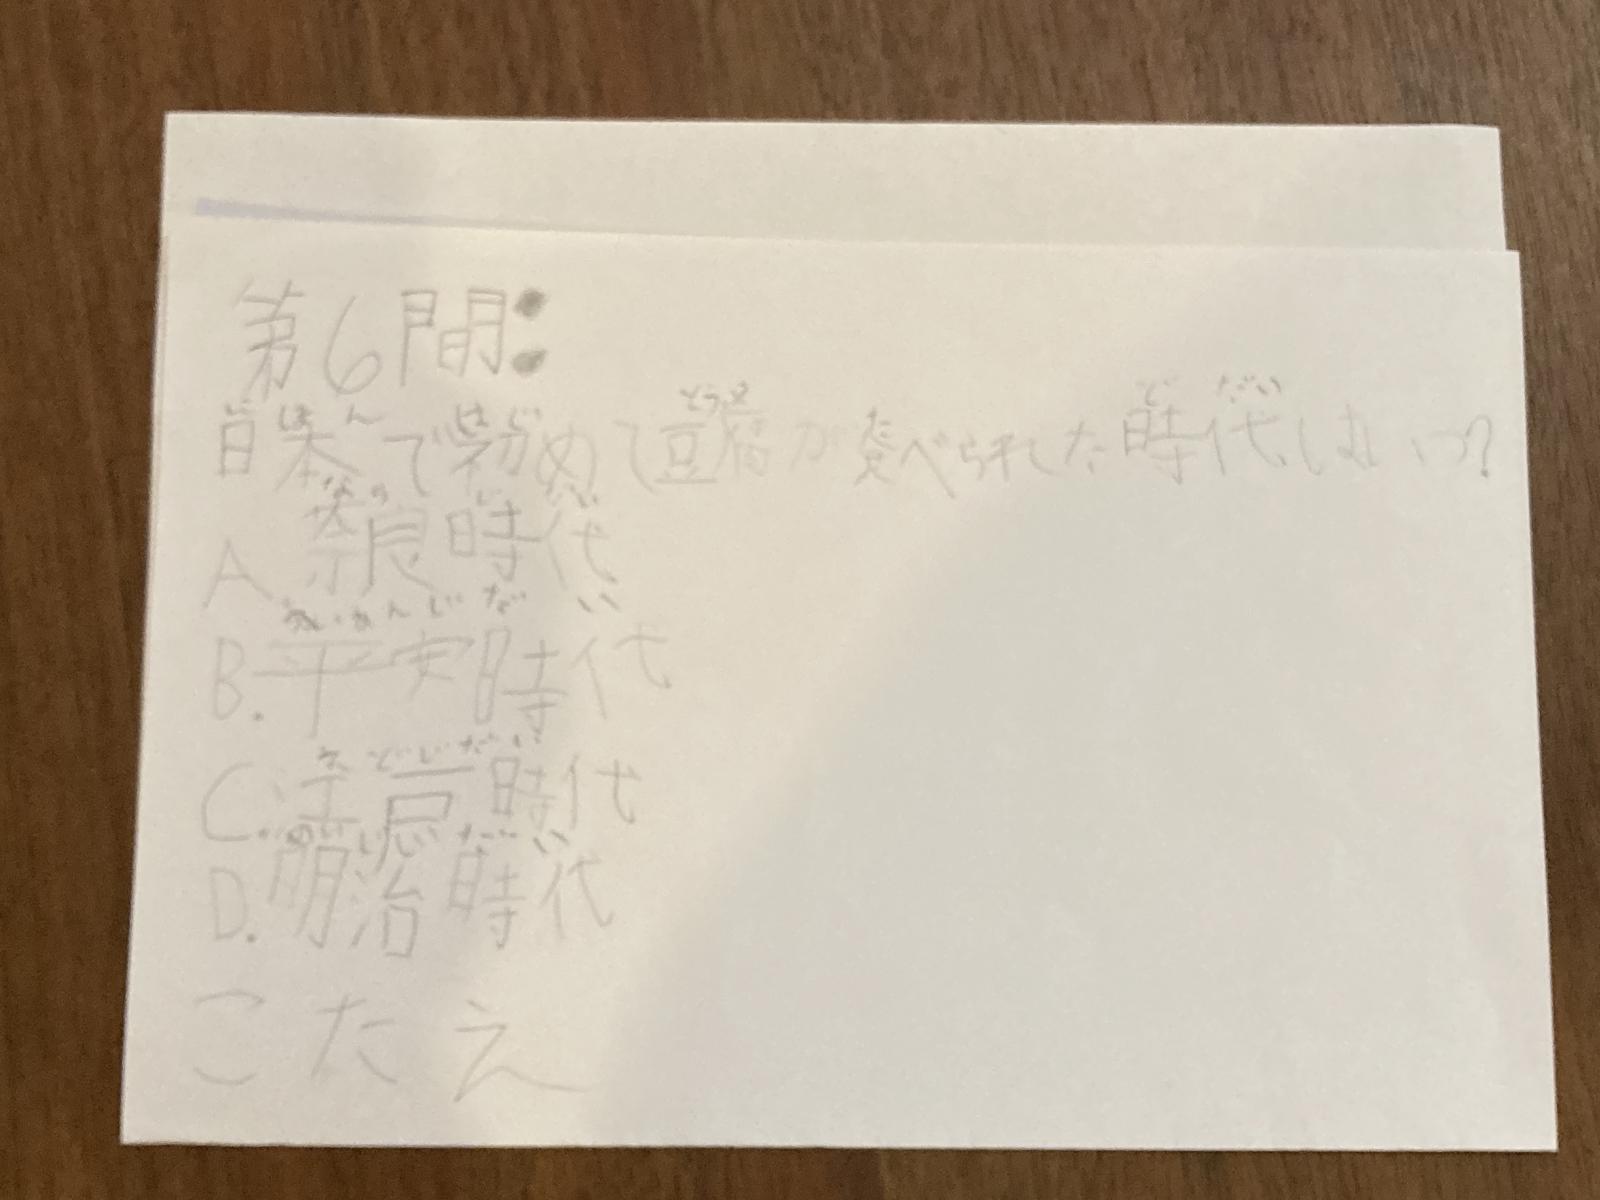 第6問:
日本で初めて豆腐が食べられした時代はいつ?
A 奈良時代
B.平安時代
C.江戸時代
D.明治時代
こたえ